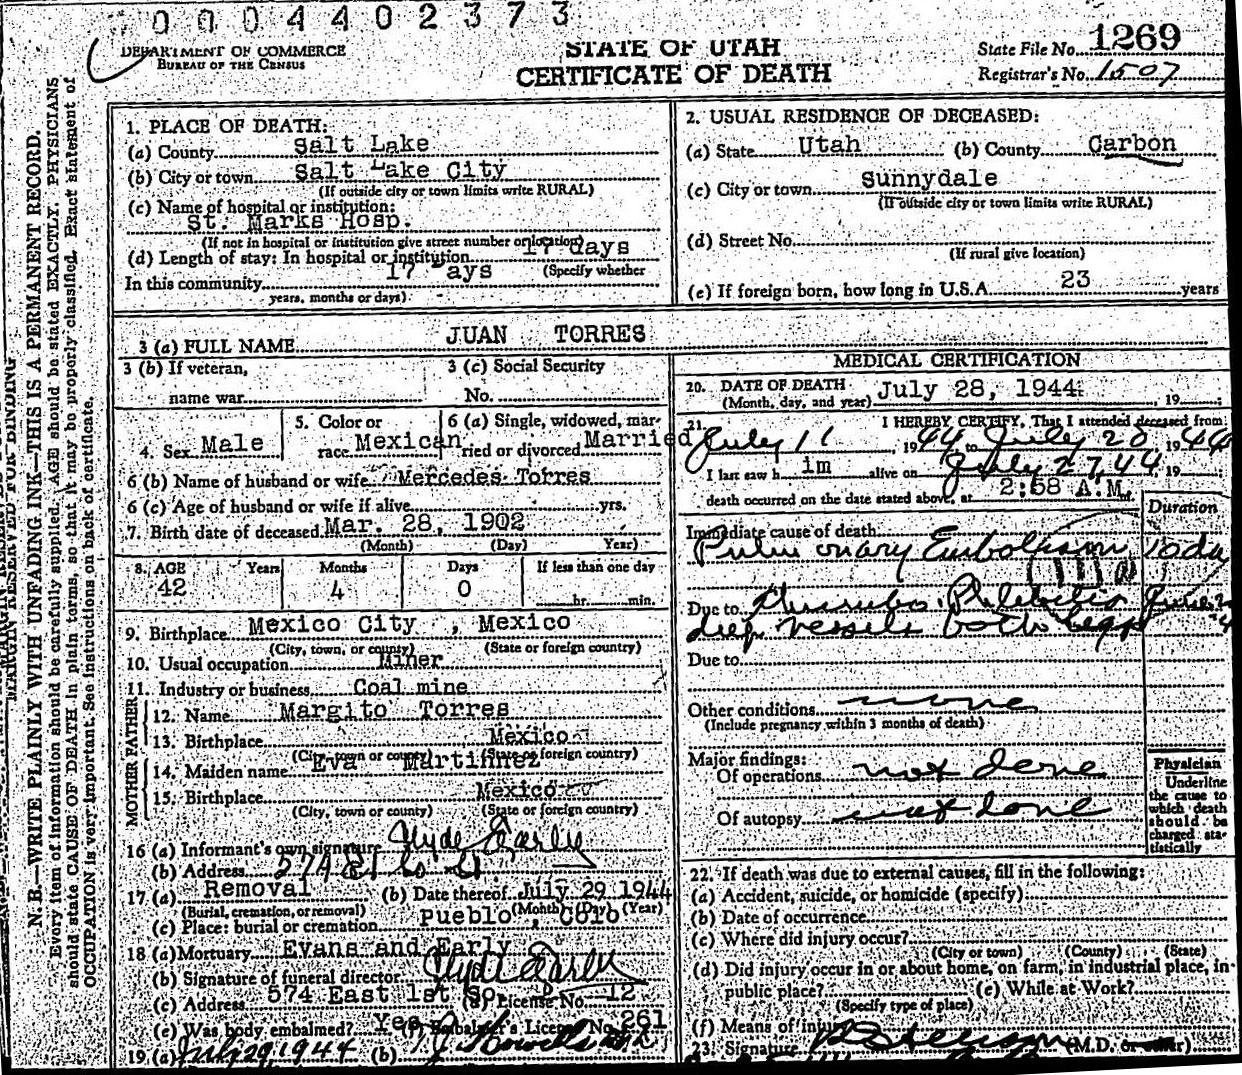 0004402373
DEPARTMENT OF COMMERCE
BUREAU OF THE CENSUS
STATE OF UTAH
CERTIFICATE OF DEATH
State File No. 1269
Registrar's No. 1507
MARGIN RESERVED FOR BINDING
N. B.—WRITE PLAINLY WITH UNFADING INK—THIS IS A PERMANENT RECORD.
Every item of information should be carefully supplied. AGE should be stated EXACTLY. PHYSICIANS
should state CAUSE OF DEATH in plain terms, so that it may be properly classified. Exact statement of
OCCUPATION is very important. See instructions on back of certificate.
1. PLACE OF DEATH:
(a) County Salt Lake
(b) City or town Salt Lake City
(If outside city or town limits write RURAL)
(c) Name of hospital or institution:
St. Marks Hosp.
(If not in hospital or institution give street number or location)
(d) Length of stay: In hospital or institution 17 days
(Specify whether
In this community 17 Days
years, months or days)
2. USUAL RESIDENCE OF DECEASED:
(a) State Utah (b) County Carbon
(c) City or town Sunnydale
(If outside city or town limits write RURAL)
(d) Street No.
(If rural give location)
(e) If foreign born, how long in U.S.A. 23 years
3 (a) FULL NAME JUAN TORRES
3 (b) If veteran,
name war
3 (c) Social Security
No.
4. Sex Male
5. Color or
race Mexican
6 (a) Single, widowed, mar-
ried or divorced Married
6 (b) Name of husband or wife Mercedes Torres
6 (c) Age of husband or wife if alive yrs.
7. Birth date of deceased Mar. 28, 1902
(Month) (Day) Year)
8. AGE Years Months Days If less than one day
42 4 0 hr. min.
9. Birthplace Mexico City, Mexico
(City, town, or county) (State or foreign country)
10. Usual occupation Miner
11. Industry or business Coal mine
FATHER
12. Name Margito Torres
13. Birthplace Mexico
(City, town or county) (State or foreign country)
MOTHER
14. Maiden name Eva Martinnez
15. Birthplace Mexico
(City, town or county) (State or foreign country)
16 (a) Informant's own signature Clyde Early
(b) Address 574 E 1 So St
17 (a) Removal (b) Date thereof July 29 1944
(Burial, cremation, or removal) (Month) (Day) (Year)
(c) Place: burial or cremation Pueblo, Colo
18 (a) Mortuary Evans and Early
(b) Signature of funeral director Clyde Early
(c) Address 574 East 1st So. License No. 12
(e) Was body embalmed? Yes (f) Embalmer's License No. 261
19 (a) July 29 1944 (b)
MEDICAL CERTIFICATION
20. DATE OF DEATH July 28, 1944 19
(Month, day, and year)
21. I HEREBY CERTIFY, That I attended deceased from
July 11 1944 to July 28 1944
I last saw him alive on July 27, 44 19
death occurred on the date stated above, at 2:58 A.M.
Duration
Immediate cause of death
Pulmonary Embolism 10 da
Due to Thrombo Phlebitis June
deep vessels both legs
Due to
Other conditions none
(Include pregnancy within 3 months of death)
Major findings:
Of operations not done
Of autopsy not done
Physician
Underline
the cause to
which death
should be
charged sta-
tistically
22. If death was due to external causes, fill in the following:
(a) Accident, suicide, or homicide (specify)
(b) Date of occurrence
(c) Where did injury occur?
(City or town) (County) (State)
(d) Did injury occur in or about home, on farm, in industrial place, in
public place? (e) While at Work?
(Specify type of place)
(f) Means of injury
23. Signature (M.D. or other)